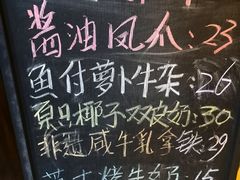 酱油凤爪:23
鱼付萝卜牛杂:26
椰子双皮奶:30
非遗咸牛乳拿铁:29
牛奶:15